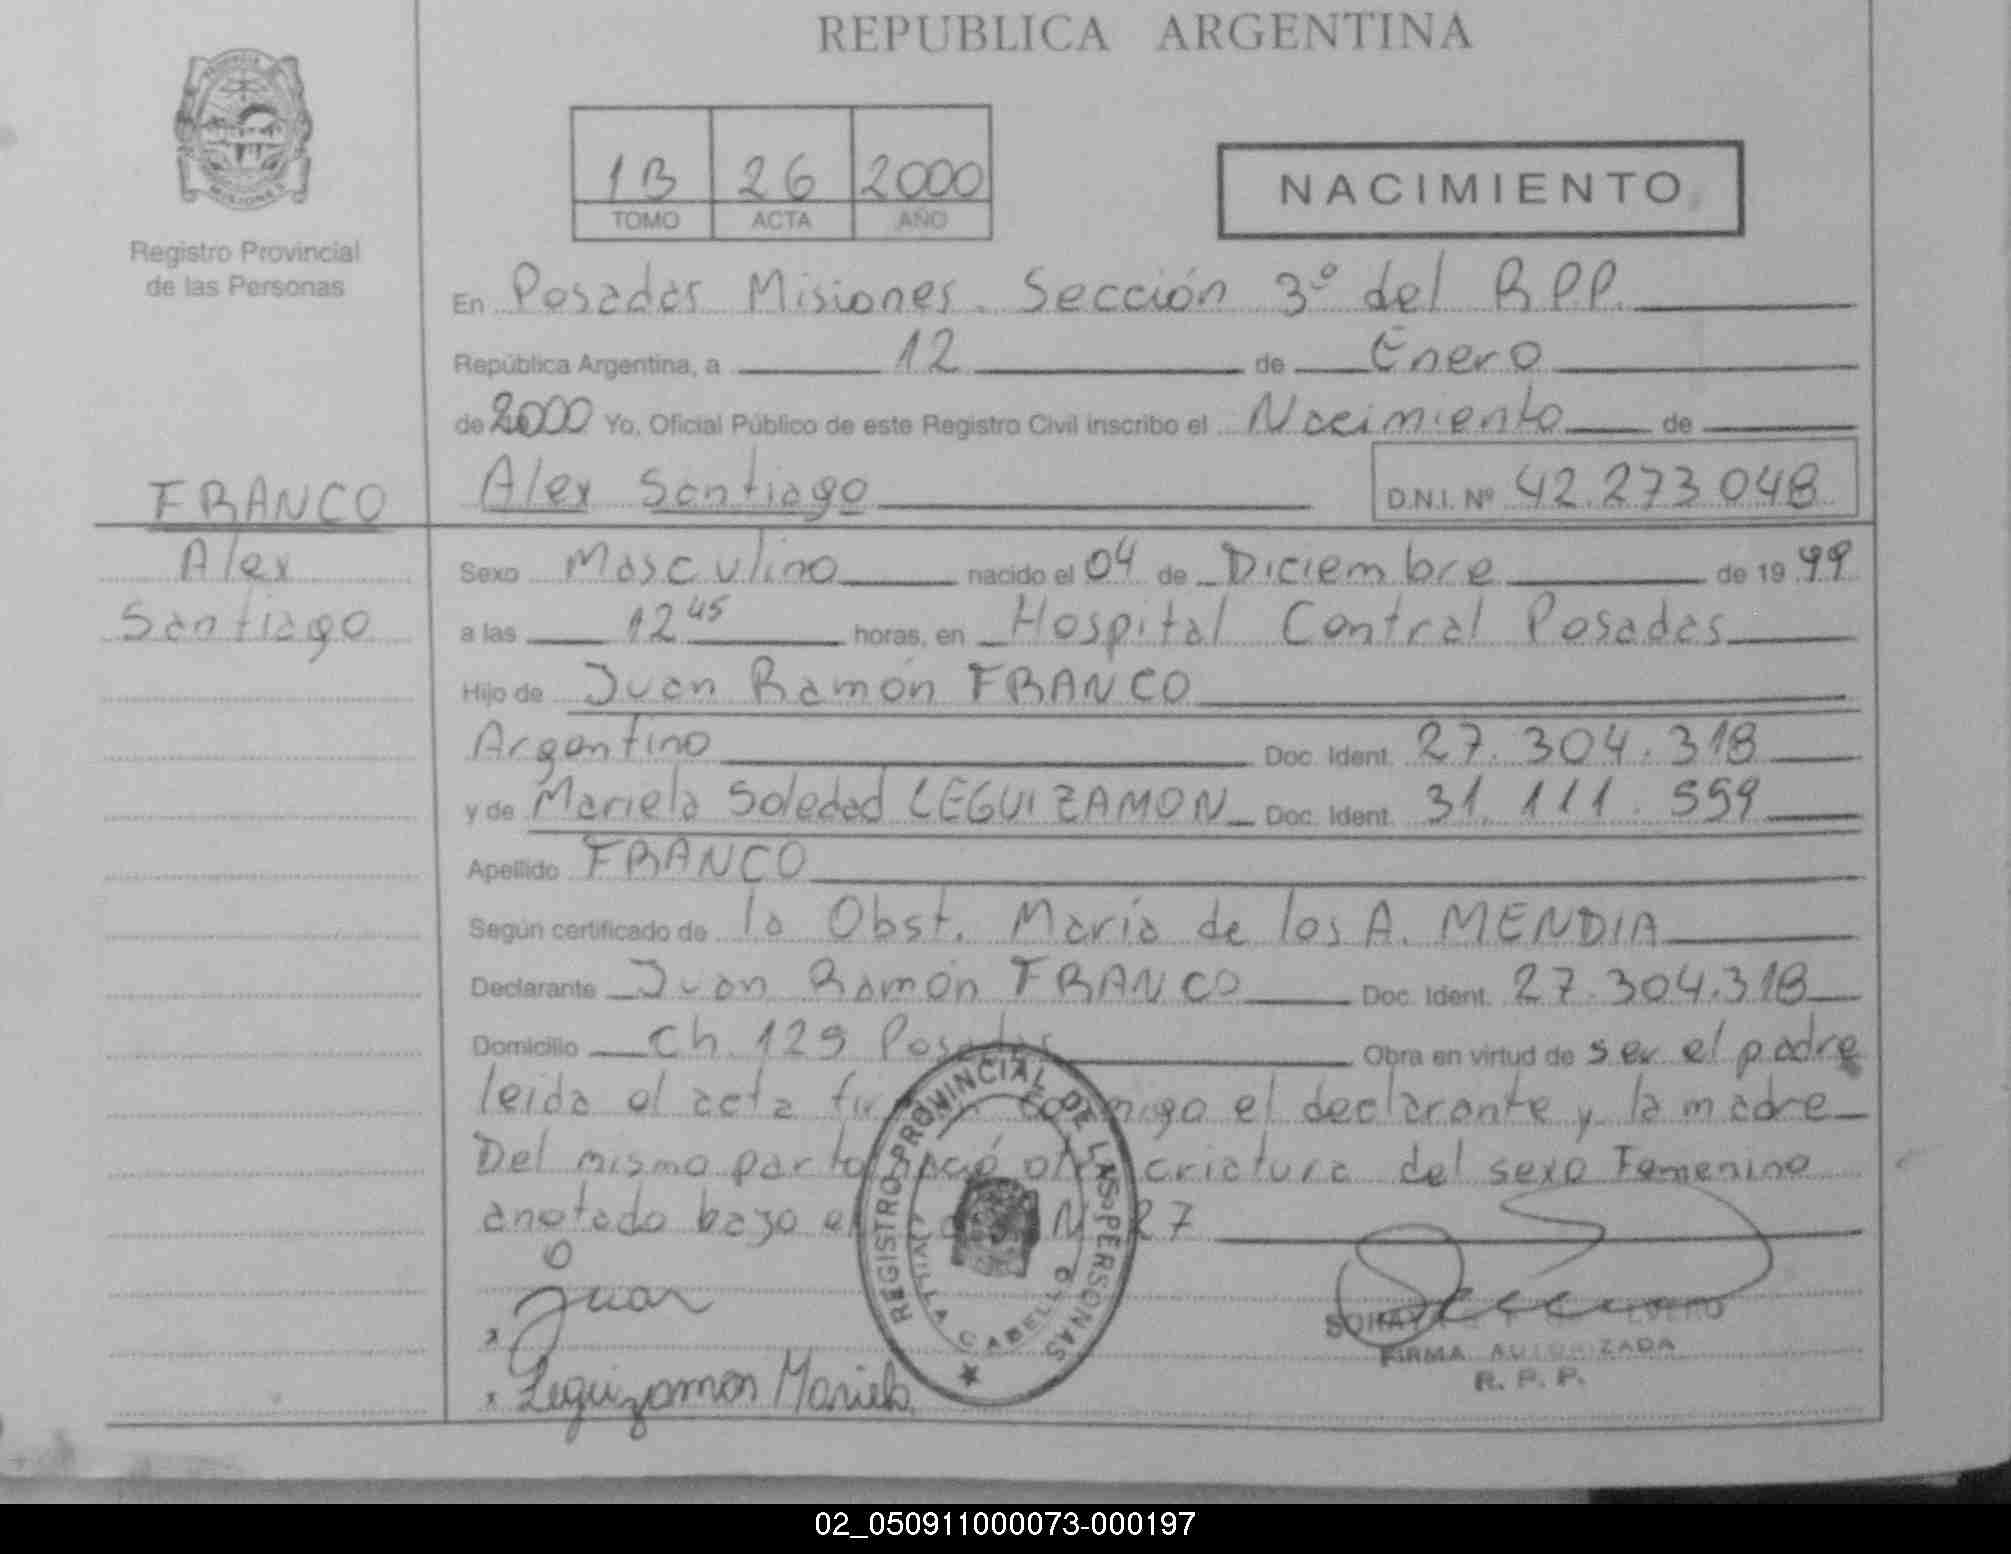 REPUBLICA ARGENTINA
PROVINCIA
MISIONES
Registro Provincial
de las Personas
1B 26 2000
TOMO ACTA AÑO
NACIMIENTO
En Posadas Misiones. Sección 3º del R.P.P.
República Argentina, a 12 de Enero
de 2000 Yo, Oficial Público de este Registro Civil inscribo el Nacimiento de
Alex Santiago D.N.I. Nº 42.273.048
FRANCO
Alex
Santiago
Sexo Masculino nacido el 04 de Diciembre de 19 99
a las 12 45 horas, en Hospital Central Posadas
Hijo de Juan Ramón FRANCO
Argentino Doc. Ident. 27.304.318
y de Mariela Soledad LEGUIZAMON Doc. Ident. 31.111.559
Apellido FRANCO
Según certificado de la Obst. María de los A. MENDIA
Declarante Juan Ramón FRANCO Doc. Ident. 27.304.318
Domicilio Ch. 129 Posadas Obra en virtud de ser el padre
leida el acta conmigo el declarante y la madre
Del mismo parto nació otra criatura del sexo Femenino
anotado bajo el Nº 27
Juan
Leguizamon Mariela
REGISTRO PROVINCIAL DE LAS PERSONAS
CABELLO
FIRMA AUTORIZADA
R. P. P.
02_050911000073-000197